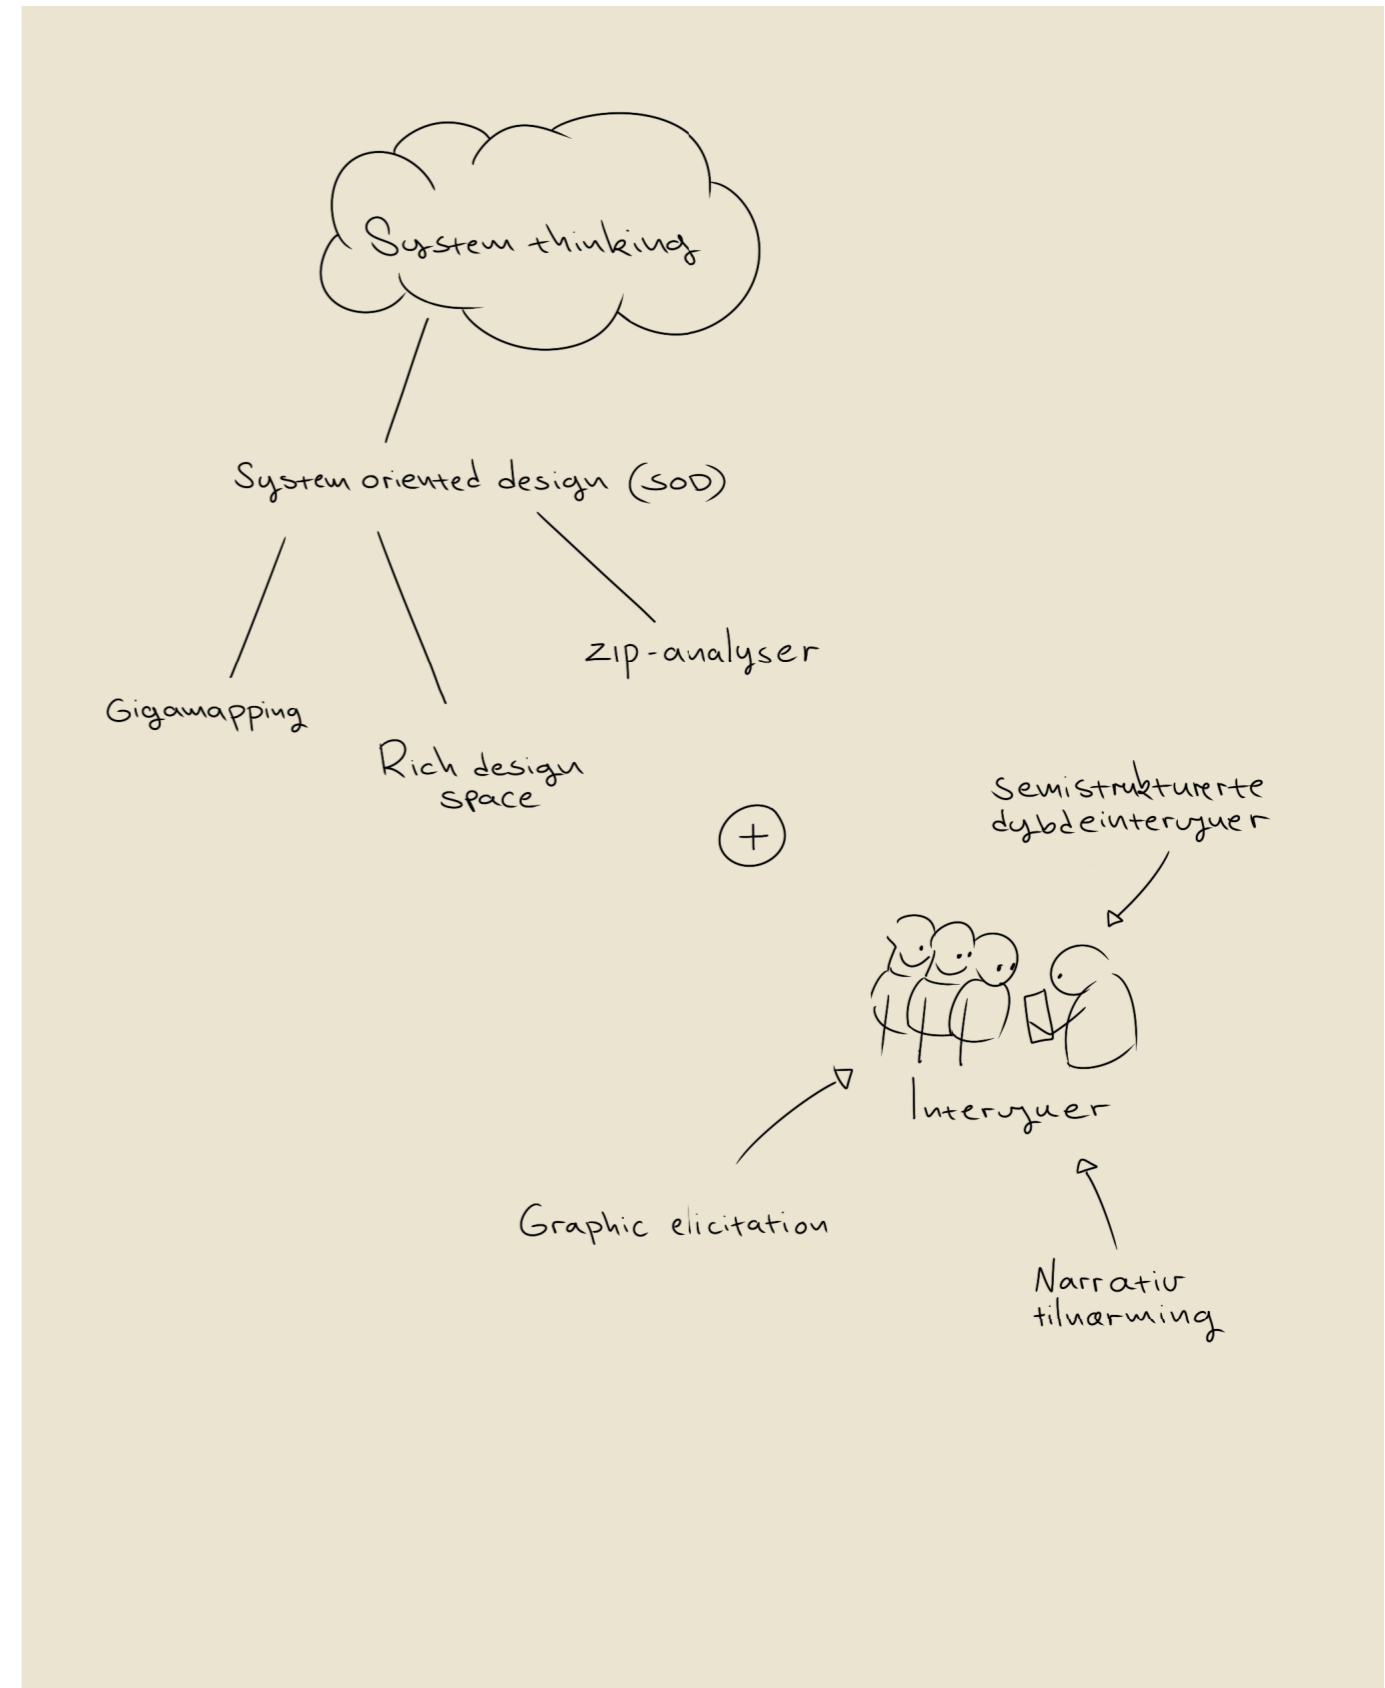 System thinking
System oriented design (SOD)
ZIP-analyser
Gigamapping
Rich design
space
+
Semistrukturerte
dybdeintervjuer
Intervjuer
Graphic elicitation
Narrativ
tilnærming